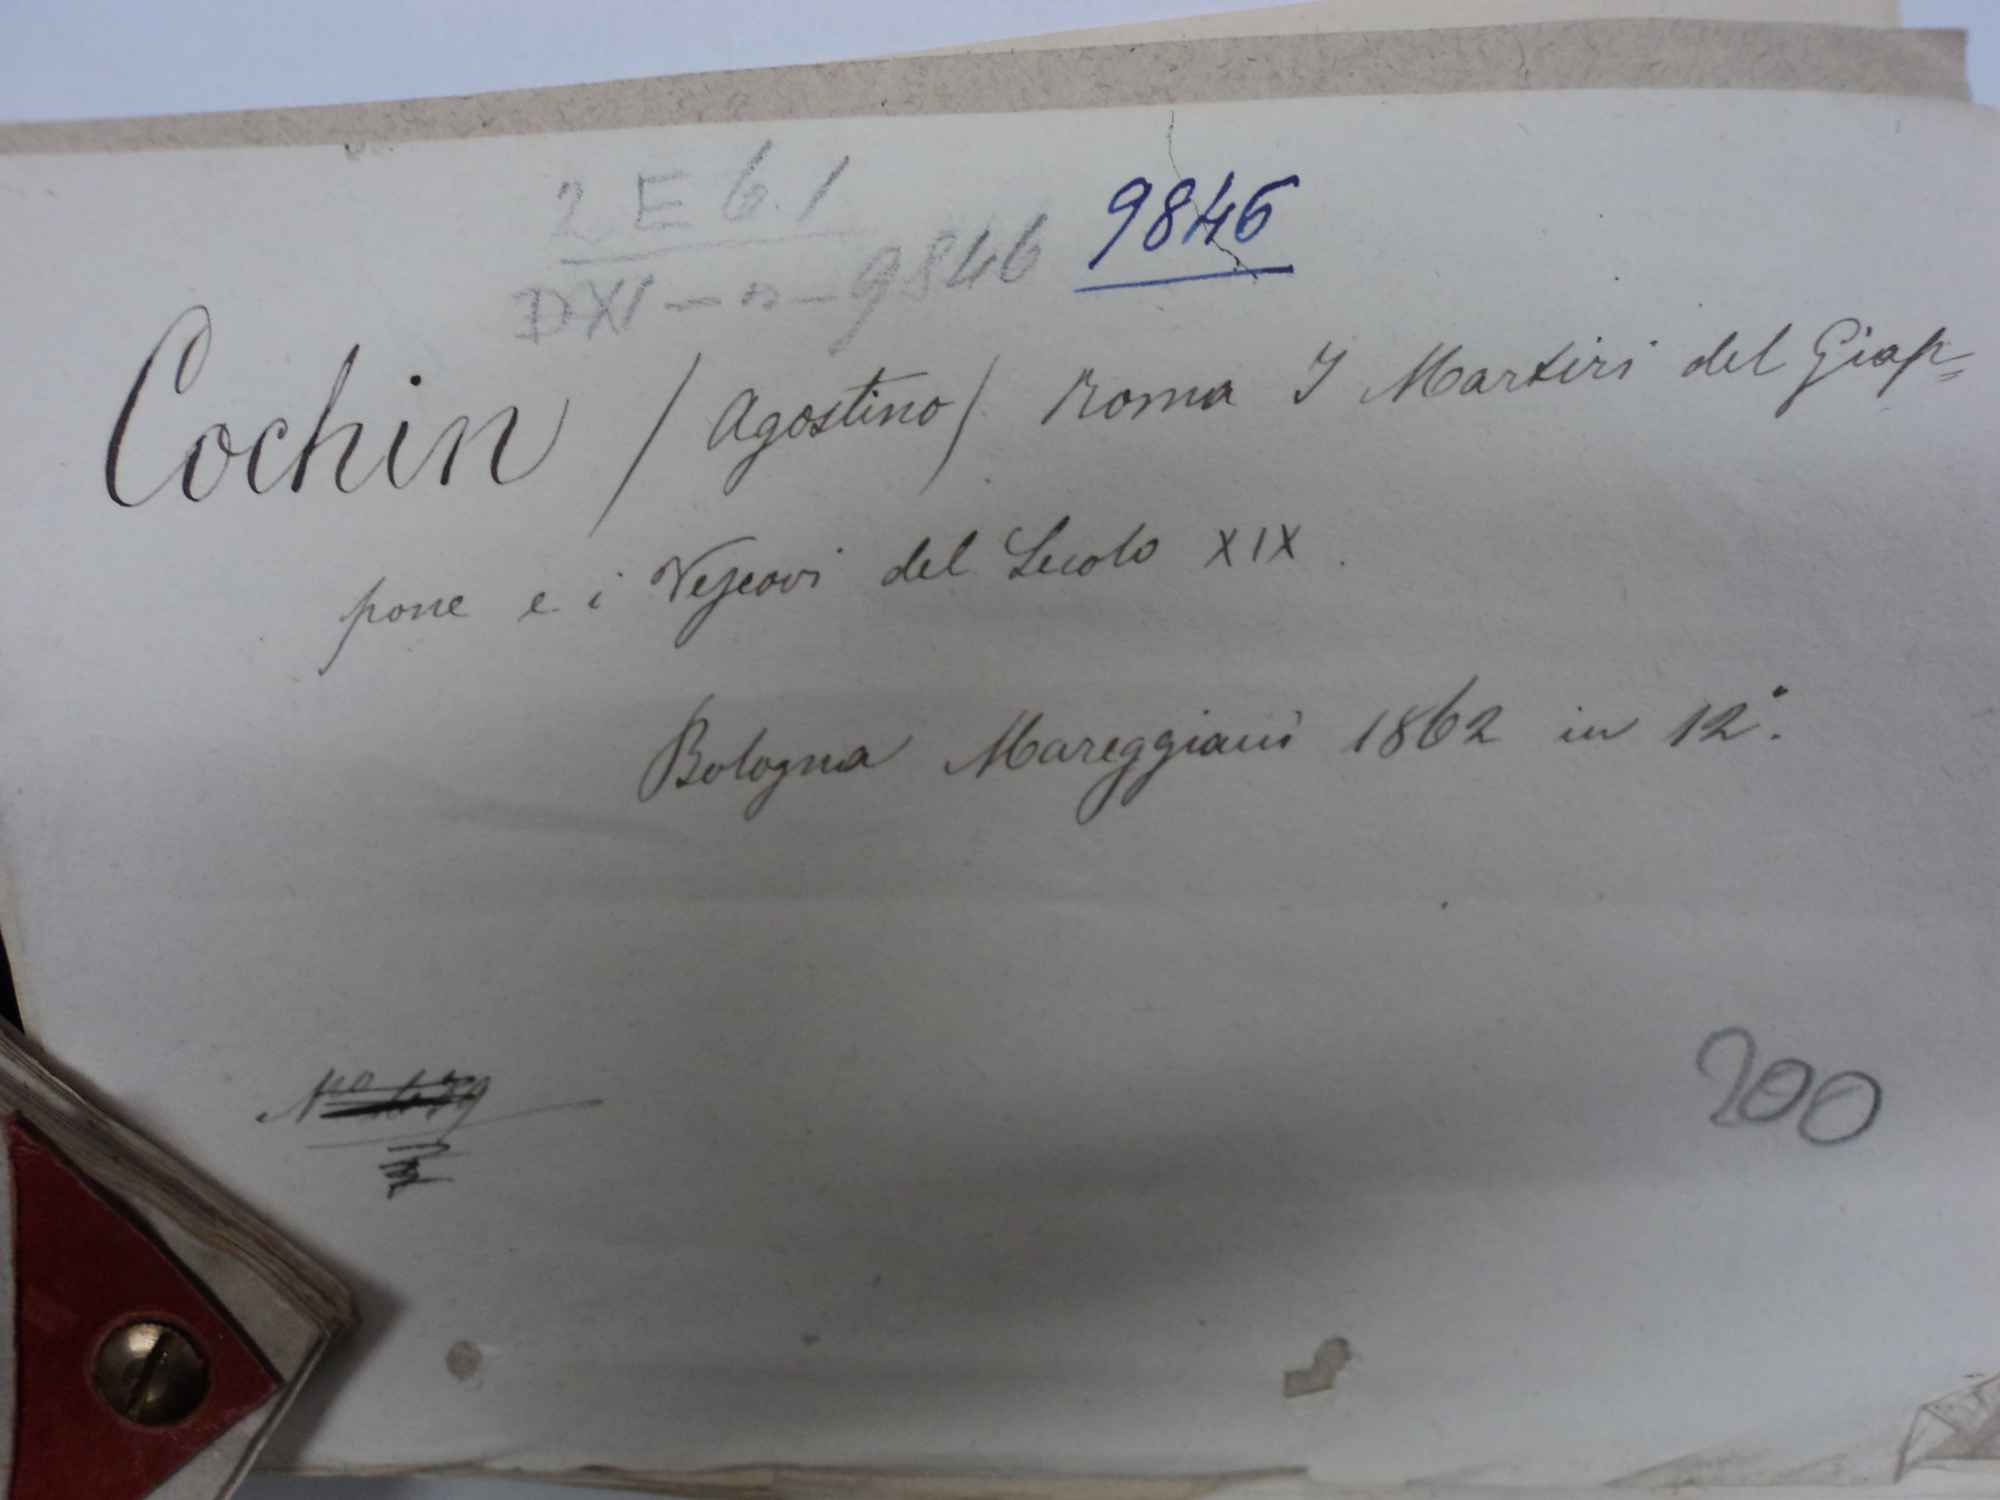 2 E 6.1
D XI - n - 9846 9846
Cochin / Agostino / Roma I Martiri del Giap=
pone e i Vescovi del Secolo XIX.
Bologna Mareggiani 1862 in 12°.
200